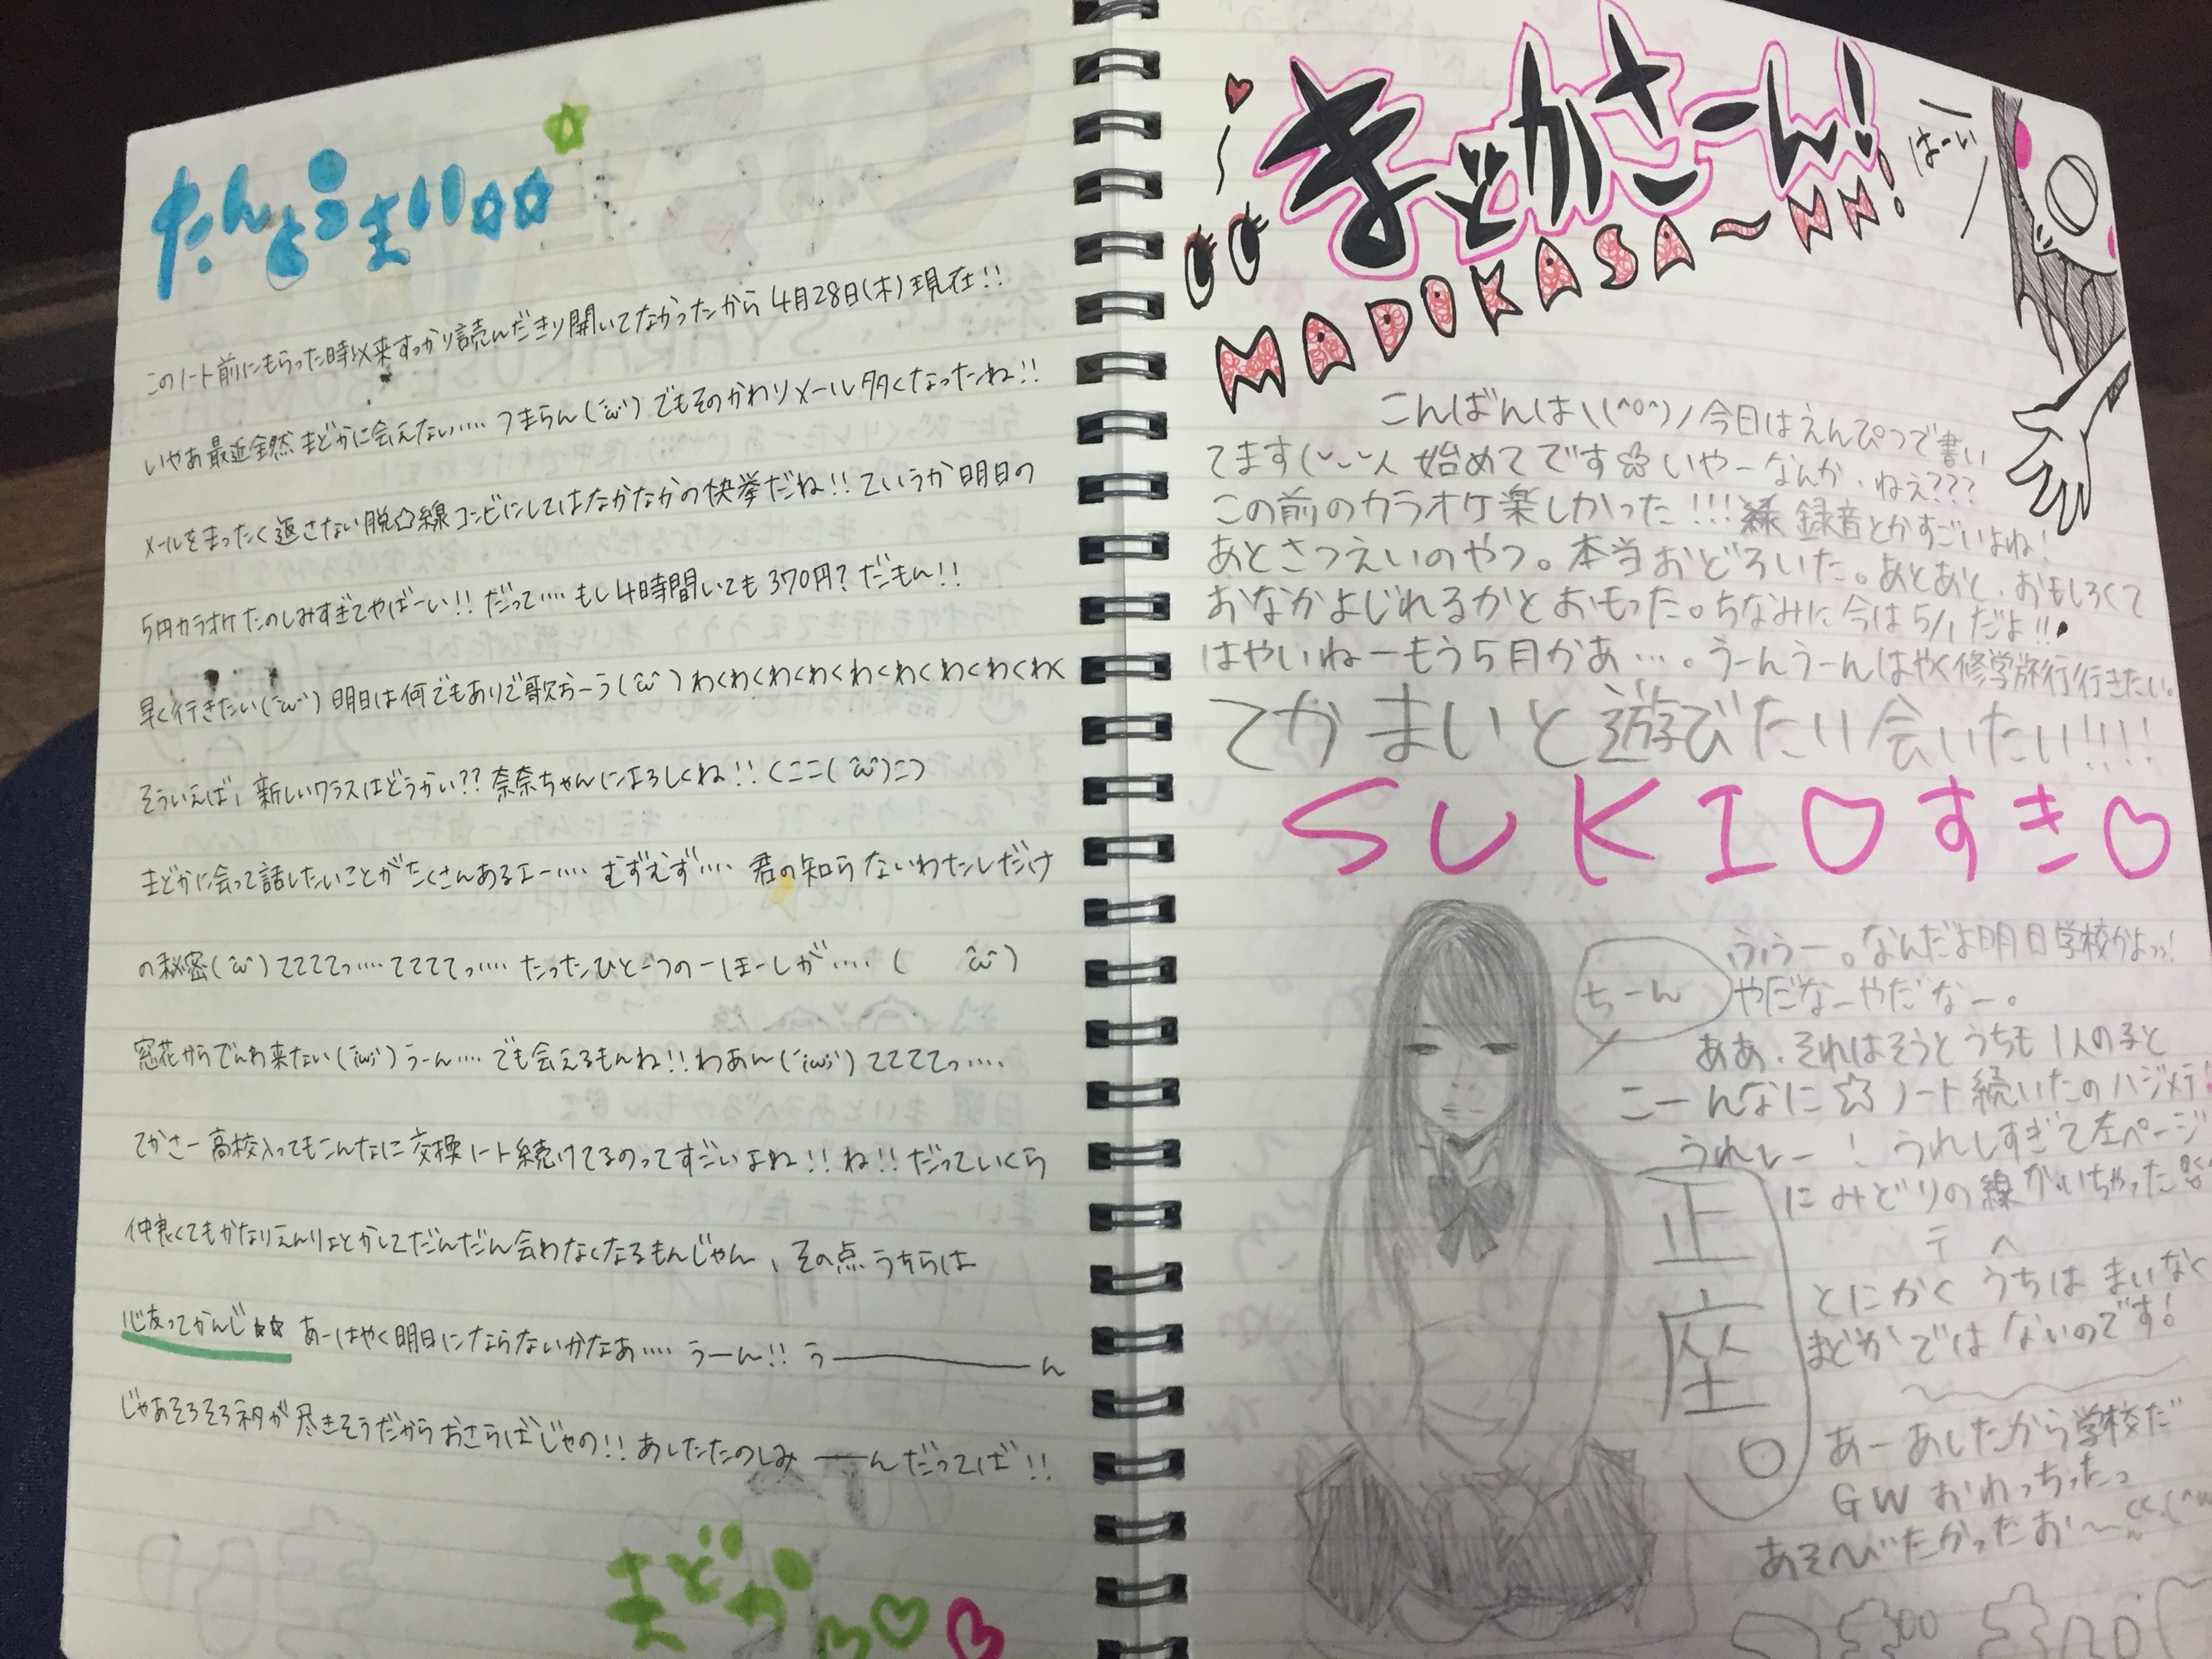 たんようまい☆☆
このノート前にもらった時以来すっかり読んだきり開いてなかったから4月28日(木)現在!!
いやあ最近全然まどかに会えない…… つまらん(´ω`) でもそのかわりメール多くなったね!!
メールをまったく返さない脱☆線コンビにしてはなかなかの快挙だね!! ていうか明日の
5円カラオケたのしみすぎてやばーい!! だって…… もし4時間いても370円? だもん!!
早く行きたい(´ω`) 明日は何でもありで歌おーう(´ω`) わくわくわくわくわくわくわくわくわくわく
そういえば、新しいクラスはどうかい?? 奈奈ちゃんによろしくね!! (ニニ(´ω`)ニ)
まどかに会って話したいことがたくさんあるエー…… むずむず…… 君の知らないわたしだけ
の秘密(´ω`) ててててっ…… ててててっ…… たったひと-つの-ほ-しが…… ( ´ω`)
窓花からでんわ来たい(´;ω;`) うーん…… でも会えるもんね!! わあん(´;ω;`) ててててっ……
てかさー高校入ってもこんなに交換ノート続けてるのってすごいよね!! ね!! だっていくら
仲良くてもかなりえんりょとかしてだんだん会わなくなるもんじゃん、その点うちらは
心友ってかんじ☆☆ あーはやく明日にならないかなあ…… うーん!! うーーーん
じゃあそろそろネタが尽きそうだからおさらばじゃの!! あしたたのしみーんだってば!!
まどか♡♡♡
まどかさーん!
MADOKASA〜NN!
はーい
こんばんは\(^o^)/今日はえんぴつで書い
てます(˘ ˘)人 始めてです☆ いやーなんか、ねえ???
この前のカラオケ楽しかった!!! 録音とかすごいよね!
あとさつえいのやつ。本当おどろいた。あとあと、おもしろくて
おなかよじれるかとおもった。ちなみに今は5/1だよ!!
はやいねーもう5月かあ…。うーんうーんはやく修学旅行行きたい。
てか まいと遊びたい会いたい!!!!
SUKI♡すき♡
ちーん
ふうー。なんだよ明日学校かよっ!
やだなーやだなー。
ああ、それはそうとうちも1人の子と
こーんなに☆ノート続いたのハジメテ!
うれしー! うれしすぎて左ページ
にみどりの線かいちゃった
テヘ
正座。
とにかく うちは まいなく
まどかではないのです!
あー あしたから学校だ
GWおわっちったっ
あそびたかったお〜